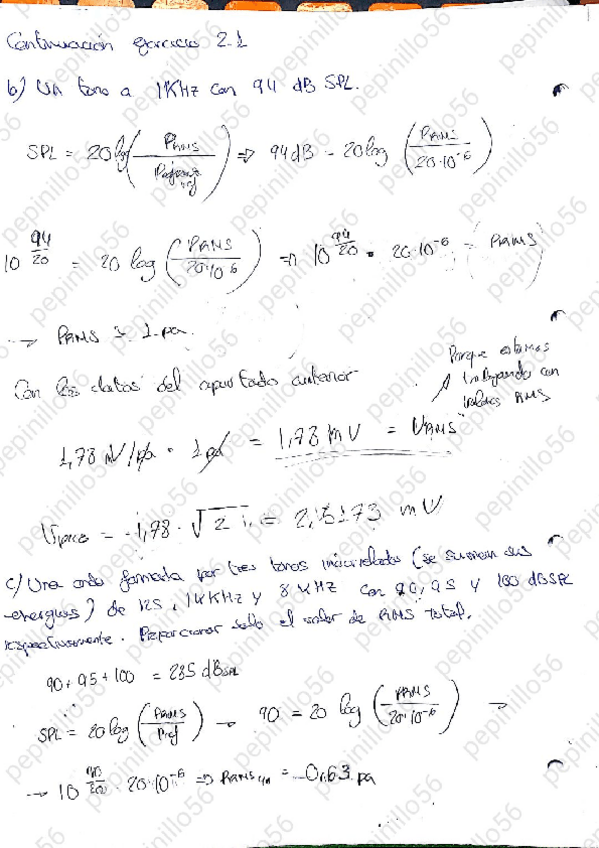 Continuación ejercicio 2.1
b) Un tono a 1KHz con 94 dB SPL.
SPL = 20 log (PRMS / Pref) => 94dB = 20log (PRMS / 20·10^-6)
10^(94/20) = 20 log (PRMS / 20·10^-6) => 10^(94/20) · 20·10^-6 = (PRMS)
→ PRMS = 1 pa.
Porque estamos
trabajando con
valores RMS
Con los datos del apartado anterior
1,78 mV/pa · 1 pa = 1,78 mV = VRMS
Vpico = 1,78 · √2 = 2,5173 mV
c) Una onda formada por tres tonos incorrelados (se suman sus
energías) de 125, 1KHz y 8 KHz con 90, 95 y 100 dBSPL
respectivamente. Proporcionar solo el valor de RMS total.
90 + 95 + 100 = 285 dBSPL
SPL = 20 log (PRMS / Pref) → 90 = 20 log (PRMS / 20·10^-6) →
→ 10^(90/20) · 20·10^-6 => PRMS = 0,63 pa
pepinillo56